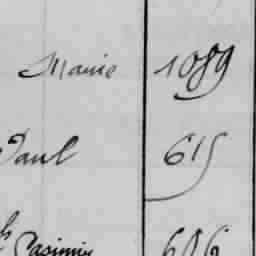 Marie 1089
Paul 615
Casimir 606